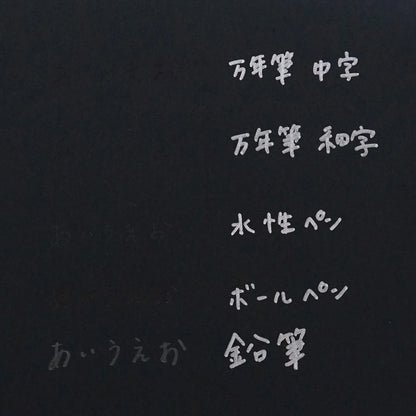 万年筆 中字
万年筆 細字
あいうえお 水性ペン
ボールペン
あいうえお 鉛筆